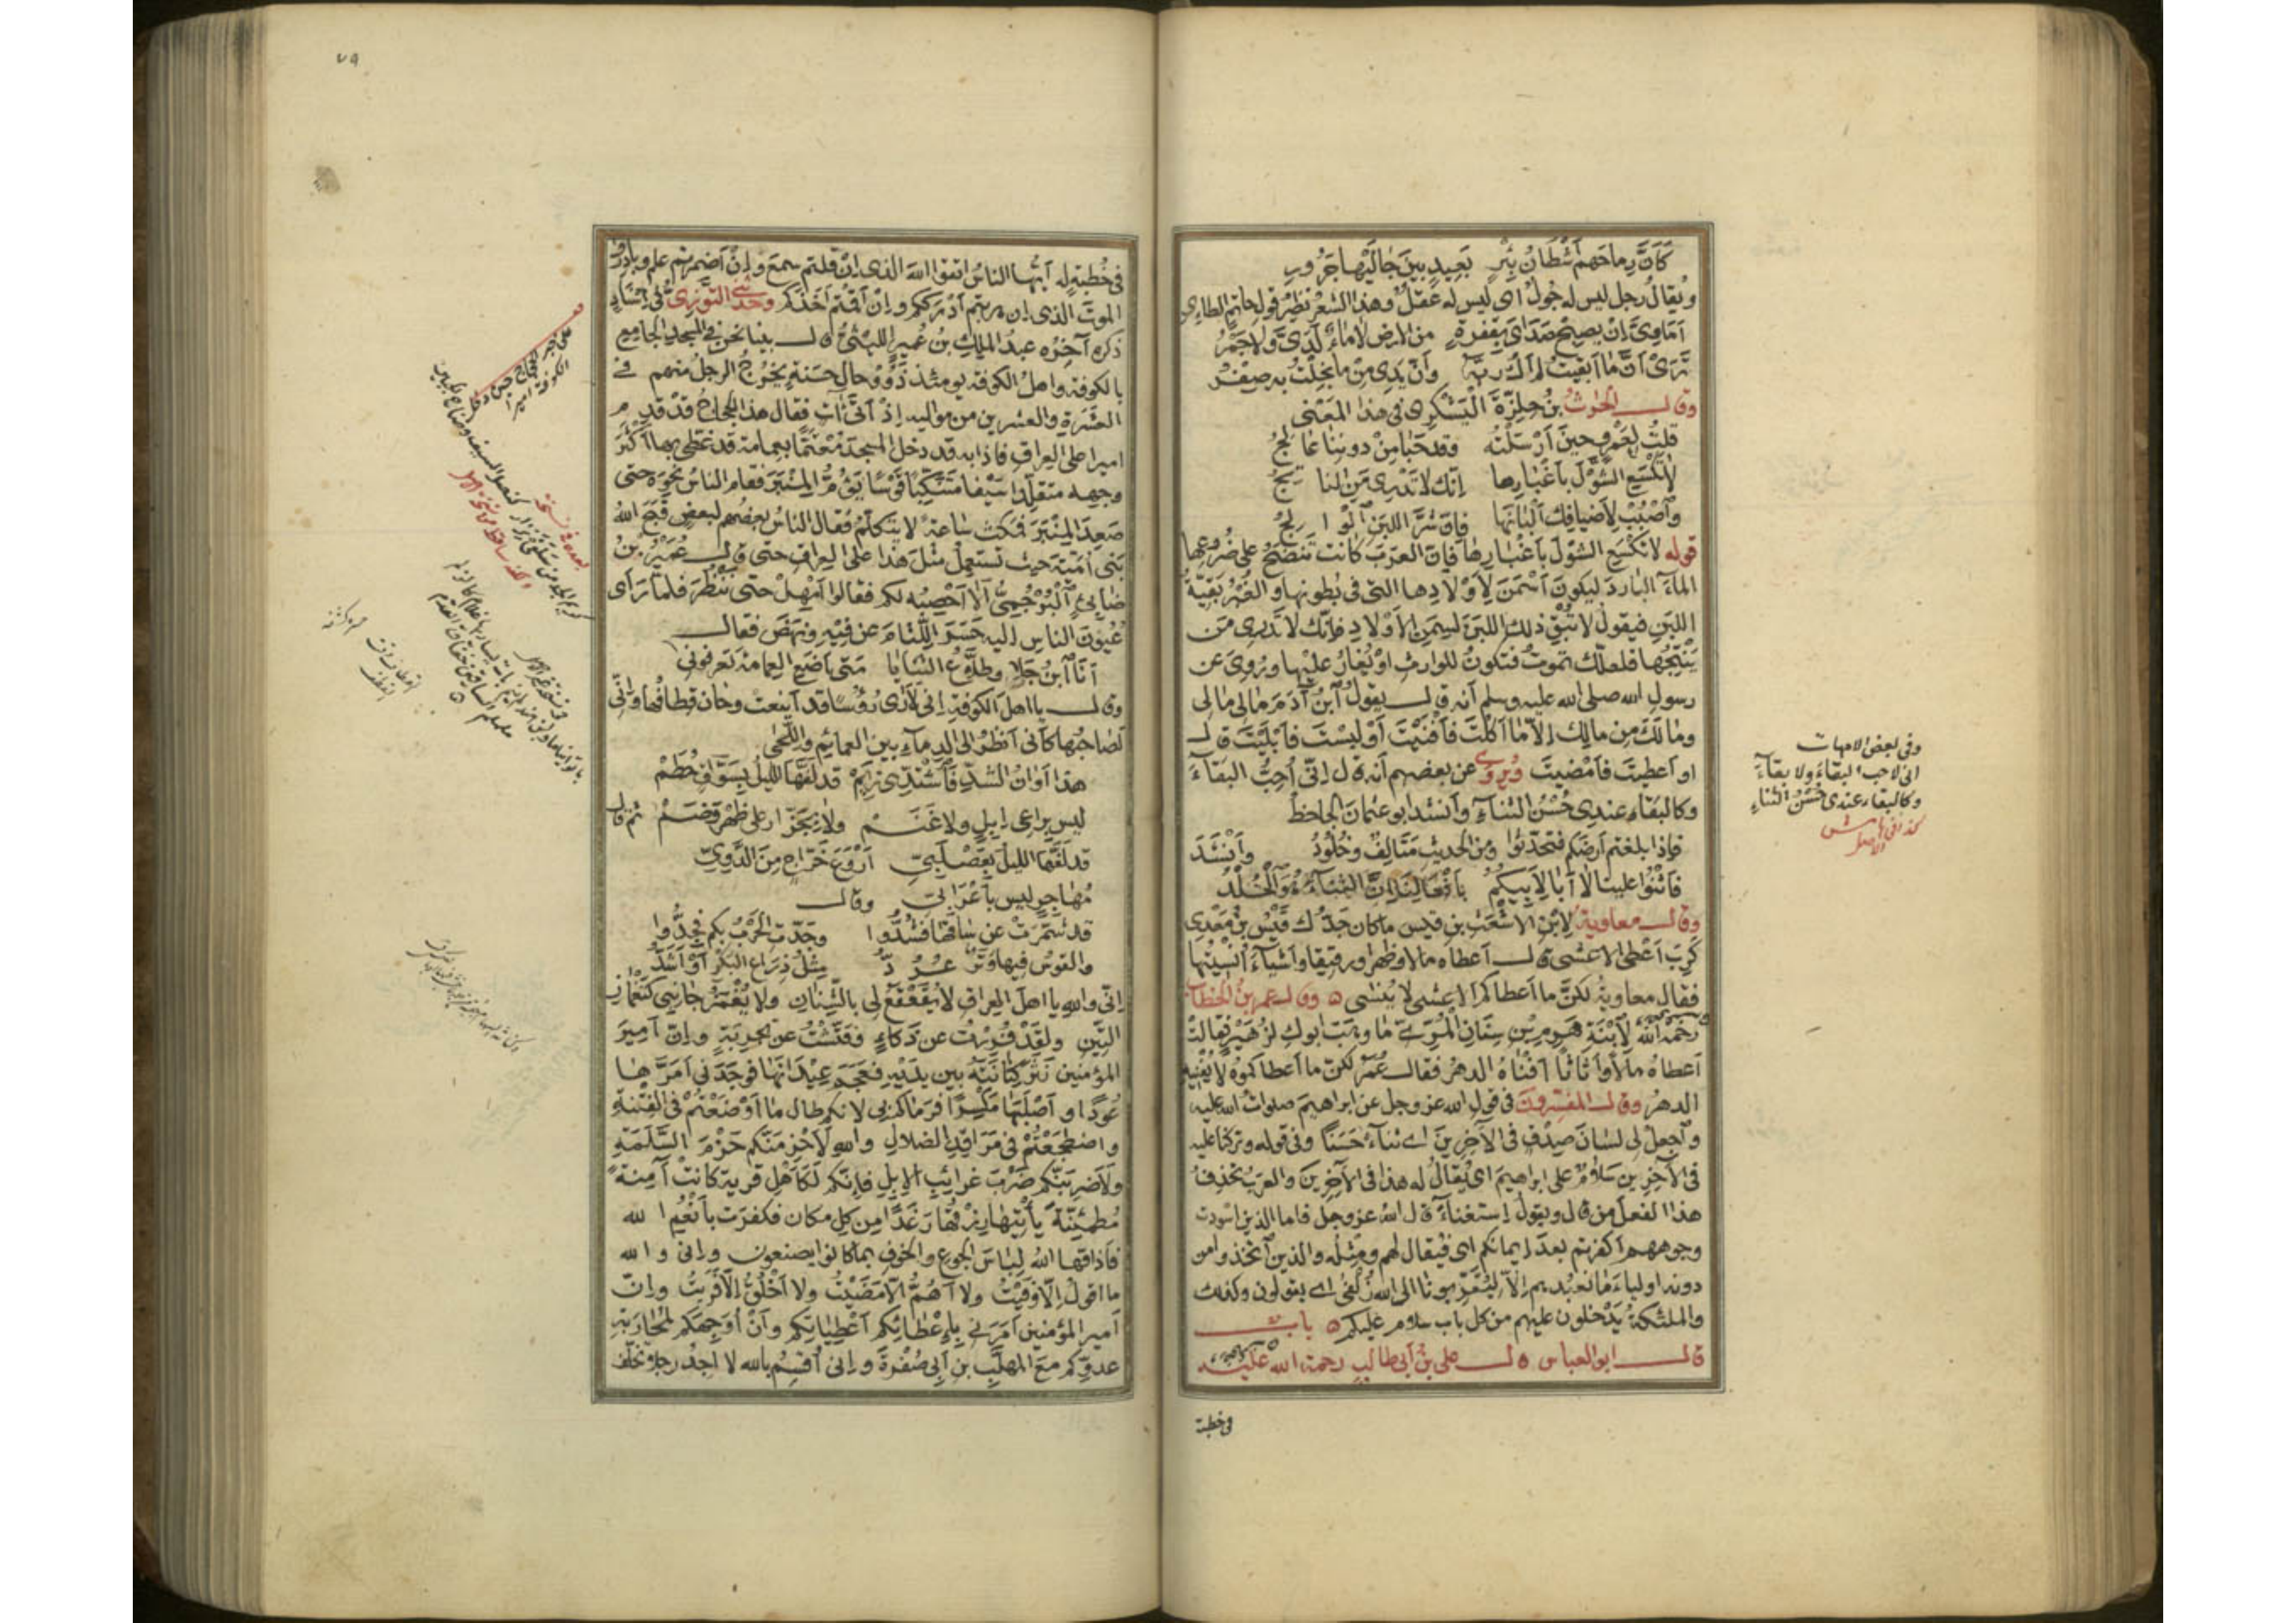 كَأَنَّ رِماحَهم أَشْطَانُ بِئْرٍ بَعِيدٍ بينَ جَالَيْها جَرُورِ
ويُقالُ رجل ليس له جُولٌ اى ليس له عَقْلٌ وهذا الشعرُ نظيرُ قولِ حاتمٍ الطاءِى
أَمَاوِىَّ اِنْ يصبح صَدَاىَ بقفرةٍ من الارض لا ماءٌ لَدَىَّ ولا خَمْرُ
تَرَىْ أَنَّ ما أبقيتُ لم أكُ ربَّهُ وأنّ يَدِى مِنْ ما بَخِلْتُ به صِفْرُ
وقال الحٰرثُ بنُ حِلِزَّةَ اليَشْكُرِى فى هذا المَعْنى
قلتُ لِعَمْرٍو حينَ أَرْسَلْتُه وقد حَبَا مِنْ دونِنا عَالِجُ
لا تَكْسَعِ الشَّوْلَ بأَغْبَارِها اِنّك لا تَدْرِى مَنِ النَّاتِجُ
وَاصْبُبْ لأَضيافِك أَلْبَانَها فإنّ شَرَّ اللبَنِ الْوالِجُ
قوله لا تَكْسَعِ الشَّوْلَ بأَغْبَارِها فإنّ العرَبَ كانت تَنْضَحُ على ضُروعِها
الماءَ البَاردَ ليكونَ أسْمَنَ لِأَوْلادِها التى فى بُطونها والغُبْرُ بَقِيّةُ
اللبَنِ فيقول لا تُبْقِ ذلك اللبَنَ لسِمَنِ الأَوْلادِ فإنّك لا تَدْرِى مَن
يَنْتِجُها فلعلّك تموتُ فتكونُ للوارثِ او يُغَارُ عليْها ورُوِىَ عن
رسولِ الله صلى الله عليه وسلم أنه قال يقولُ ابنُ آدَمَ مَالى مَالى
ومَا لَكَ مِن مالِك اِلّا مَا أكَلْتَ فأَفْنَيْتَ أوْ لبِسْتَ فأَبْلَيْتَ قال
او أعطيتَ فأمْضَيتَ ويُروى عن بعضهم أنه قال اِنّى أُحِبُّ البَقَاءَ
وكالبَقَاء عندِى حُسْنُ الثنَاءِ وأنشد ابو عثمانَ الجاحظُ
فإذا بلغتم أرضَكم فتحدّثوا ومن الحديثِ مَتَالِفٌ وخُلُودُ وأَنْشَدَ
فأَثْنُوا علينا لا أبَا لِأَبِيكُمُ بأَفْعَالِنا إنّ الثنَاءَ هُوَ الْخُلْدُ
وقال معاوية لِابْنِ الاشعَثِ بنِ قيسٍ ما كان جَدُّك قَيْسُ بنُ مَعْدِى
كَرِبَ أَعْطَى الاعْشَى قال أعطاه مالا وظَهْرا ورقيقا وأشياءَ أُنْسِيتُها
فقال معاويةُ لكنّ ما أعطاكم الاعشى لا يُنْسَى وقال عمر بنُ الخطاب
رَحِمَهُ الله لِابْنَةِ هَرِمِ بنِ سِنَانٍ المُرِّىّ مَا وهَبَ ابوكِ لزُهَيْرٍ فقالتْ
أعطاهُ مالًا وأثاثًا أفْناهُ الدهرُ فقال عُمَرُ لكنّ ما أعطاكموهُ لا يُفْنِيهِ
الدهرُ وقال المفسّرون فى قولِ الله عزّ وجل عن ابراهيمَ صلواتُ الله عليه
واجعلْ لى لسانَ صِدْقٍ فى الآخِرِينَ اى ثنَاءً حَسَنًا وفى قوله وتركنا عليه
فى الآخِرِين سَلامٌ على ابراهيمَ اى يُقالُ له هذا فى الآخِرِينَ والعرَبُ تَحْذِفُ
هذا الفعلَ مِن قال ويقولُ اِستغناءً قال الله عزّ وجلّ فاما الذين اسودت
وجوههم أكفرتم بعدَ اِيمانكم اى فيُقال لهم ومِثلُه والذين اتّخذوا من
دونه اولياءَ مَا نعبُدهم اِلّا ليُقَرِّبونَا الى الله زُلْفَى اى يقولون وكذلك
والملٰئكةُ يَدْخلون عليهم من كل باب سلام عليكم باب
قال ابو العباس قال على بنُ أبى طالبٍ رحمة الله عليه
فى خطبة
وفى بعض الامهات
انى لاحب البقاءَ ولا بقاءَ
وكالبقاء عندى حُسْنُ الثناءِ
٧٩
فى خُطْبةٍ له أيُّها الناسُ اتقوا اللهَ الذى اِنْ قلتم سمِعَ واِنْ أضمرتم علم وبادِرُوا
الموتَ الذى اِن هربتم أدْرَككم واِنْ أقمتم أخَذَكم وحَدثنى التَّوَّزِىُّ فى اِسْنَادٍ
ذكره آخِرُه عبدُ الملك بن عُميرٍ الليْثىُّ قال بينا نحن فى المسجد الجامع
بالكوفة واهلُ الكوفة يومئذ ذَوُو حالٍ حَسَنةٍ يخْرُجُ الرجلُ منهم فى
العَشَرةِ والعشرين من مواليه اِذْ أتَى آتٍ فقال هذا الحجّاجُ قدْ قَدِم
اميرا على العِراقِ فاذا به قد دخل المسجدَ مُعْتَمًّا بعِمامة قد غطّى بها أكثرَ
وجهِه متقلّدا سَيفا متنَكِّبًا قَوْسًا يَؤُمُّ المِنْبَرَ فقام الناسُ نحوَه حتى
صَعِدَ المِنْبَرَ فمكثَ ساعةً لا يتكلّمُ فقال الناسُ بعضُهم لبعضٍ قبَحَ اللهُ
بَنى أُميّةَ حيث تستعمِلُ مثلَ هذا على العِراقِ حتى قال عُمَيْرُ بنُ
ضابِئٍ البُرْجُمِىُّ ألا أَحْصِبُه لكم فقالوا أمْهِلْ حتى نَنْظُرَ فلمّا رَأى
عُيونَ الناسِ اليه حسَرَ اللِّثَامَ عن فِيهِ ونهَضَ فقال
أنَا ابنُ جَلا وطلَّاعُ الثنَايَا متَى أضعِ العِمامَةَ تعرفونى
وقال يا اهلَ الكوفةِ اِنى لأرى رُؤُسًا قد أينعت وحَان قِطافُها واِنّى
لصَاحبُها كأنى أنظرُ الى الدِماءِ بين العمايم واللِّحَى
هذا أوَانُ الشَدِّ فَاشْتدِّى زِيَمْ قد لفّها الليلُ بسَوَّاقٍ حُطَمْ
ليس براعى اِبِلٍ ولا غَنَمْ ولا بِجَزَّارٍ على ظَهْرِ وَضَمْ ثم قال
قد لَفَّها الليلُ بعَصْلَبِىِّ أرْوَعَ خَرّاجٍ مِنَ الدَّوِّىِّ
مُهاجِرٍ ليس بأَعْرَابِىِّ وقال
قد شَمَّرَتْ عن سَاقِها فَشُدُّوا وجَدّتِ الحَرْبُ بكم فجِدُّوا
والقوسُ فيها وَتَرٌ عُرُدُّ مِثْلُ ذِرَاعِ البَكْرِ أوْ أَشَدُّ
اِنّى والله يا اهلَ العِراقِ لا يُقَعْقَعُ لى بالشِّنَانِ ولا يُغْمَزُ جانبى كتَغْمَازِ
التِّينِ ولقَدْ فُرِرْتُ عن ذَكَاءٍ وفُتِّشْتُ عن تجرِبَةٍ واِنّ أميرَ
المؤمنين نَثَرَ كِنَانَتَهُ بين يديْهِ فعَجَمَ عِيْدَانَها فوجَدَنى أمَرَّها
عُودًا وأصْلَبَها مَكْسِرًا فرَماكم بى لانكم طال ما أوْضَعْتُمْ فى الفِتْنةِ
واضطجَعْتُمْ فى مَرَاقِدِ الضلالِ والله لَأَحْزِمَنّكم حَزْمَ السَّلَمَةِ
ولَأضرِبَنّكم ضَرْبَ غرائِبِ الاِبِلِ فاِنّكم لَكَأَهْلِ قريةٍ كانت آمِنَةً
مُطمئِنّةً يأتِيها رِزقُها رَغَدًا مِن كل مكان فكفرَت بأنْعُمِ الله
فأذاقَها اللهُ لِبَاسَ الجوعِ والخوفِ بما كانوا يصنعون واِنى والله
ما اقولُ اِلّا وَفَيْتُ ولا أهُمُّ اِلّا أمضَيْتُ ولا أخْلُقُ اِلّا فَرَيْتُ واِنّ
أميرَ المؤمنين أمَرَنى بِاِعْطائِكم أعْطِيَاتِكم وأنْ أُوَجِّهَكم لمُحَارَبةِ
عدوِّكم معَ المهلَّبِ بنِ أبى صُفْرَةَ واِنى أُقسِمُ بالله لا أجِدُ رجلا تخلّف